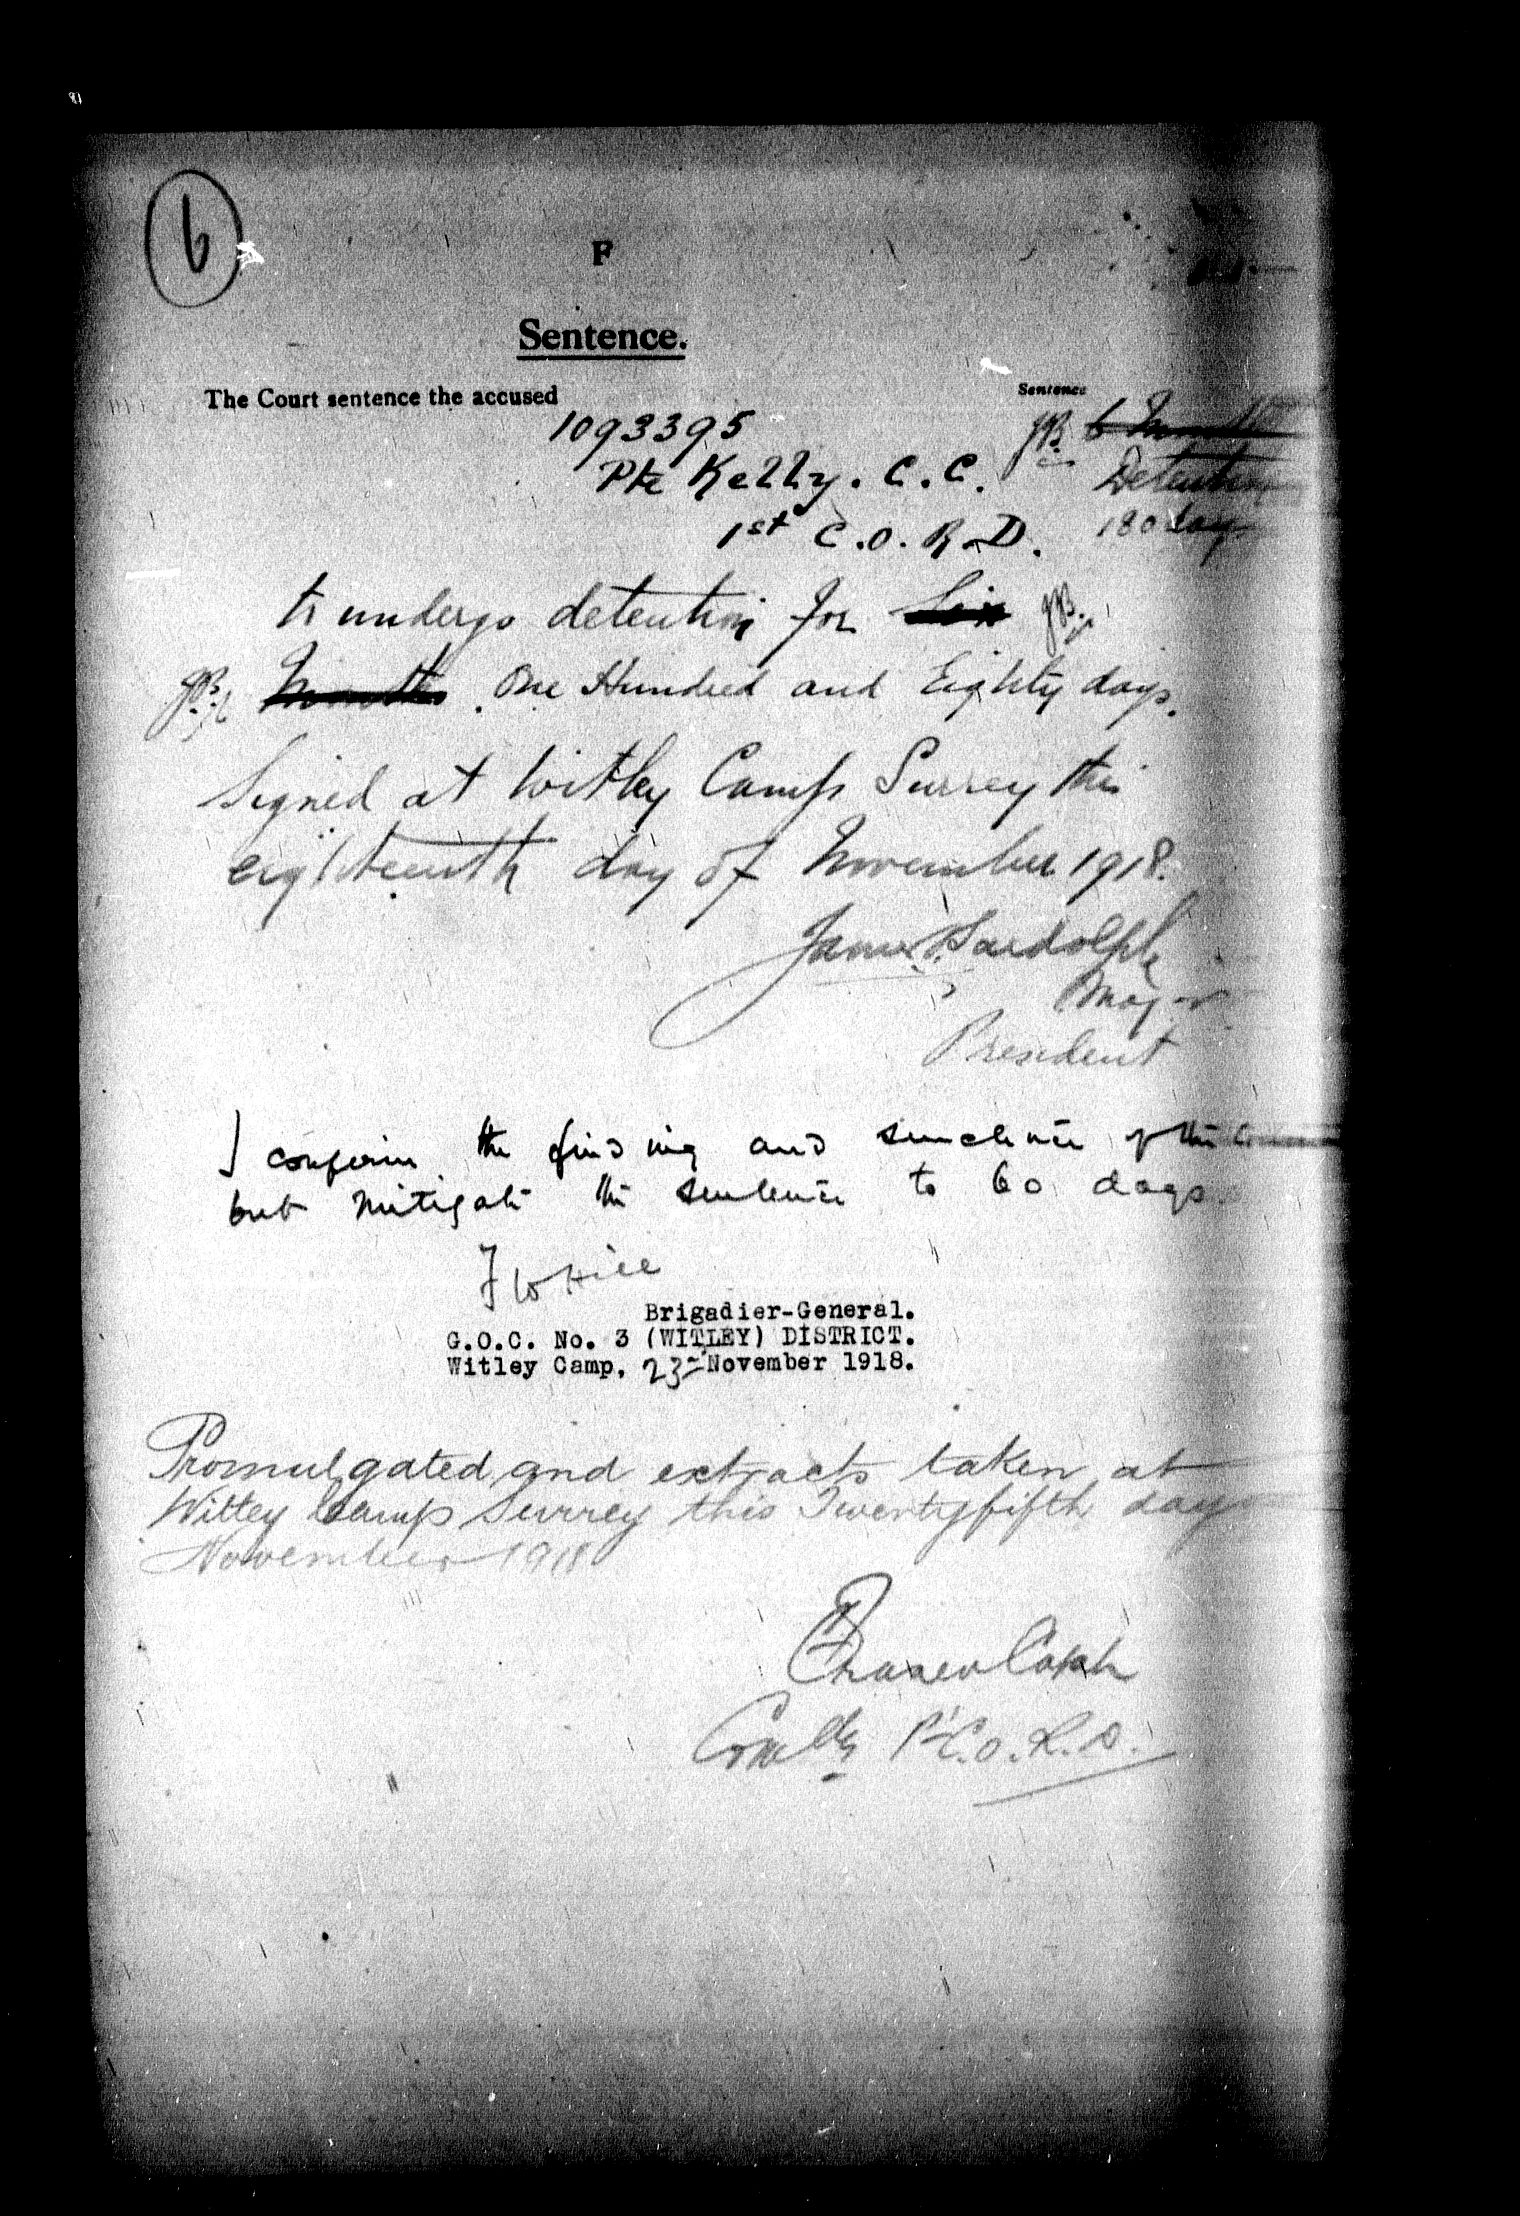 6
F
Sentence.
The Court sentence the accused
Sentence
1093395
Pte Kelly. C.C.
1st C.O.R.D.
JB. 6 Months
Detention
180 days
to undergo detention for Six JB.
JB. Months. One Hundred and Eighty days.
Signed at Witley Camp Surrey this
eighteenth day of November 1918.
James
Major
President
I confirm the finding and sentence of the
but mitigate the sentence to 60 days.
F W Hill
Brigadier-General.
G.O.C. No. 3 (WITLEY) DISTRICT.
Witley Camp, 23 November 1918.
Promulgated and extracts taken at
Witley Camp Surrey this Twentyfifth day
November 1918
Comdg 1st C.O.R.D.